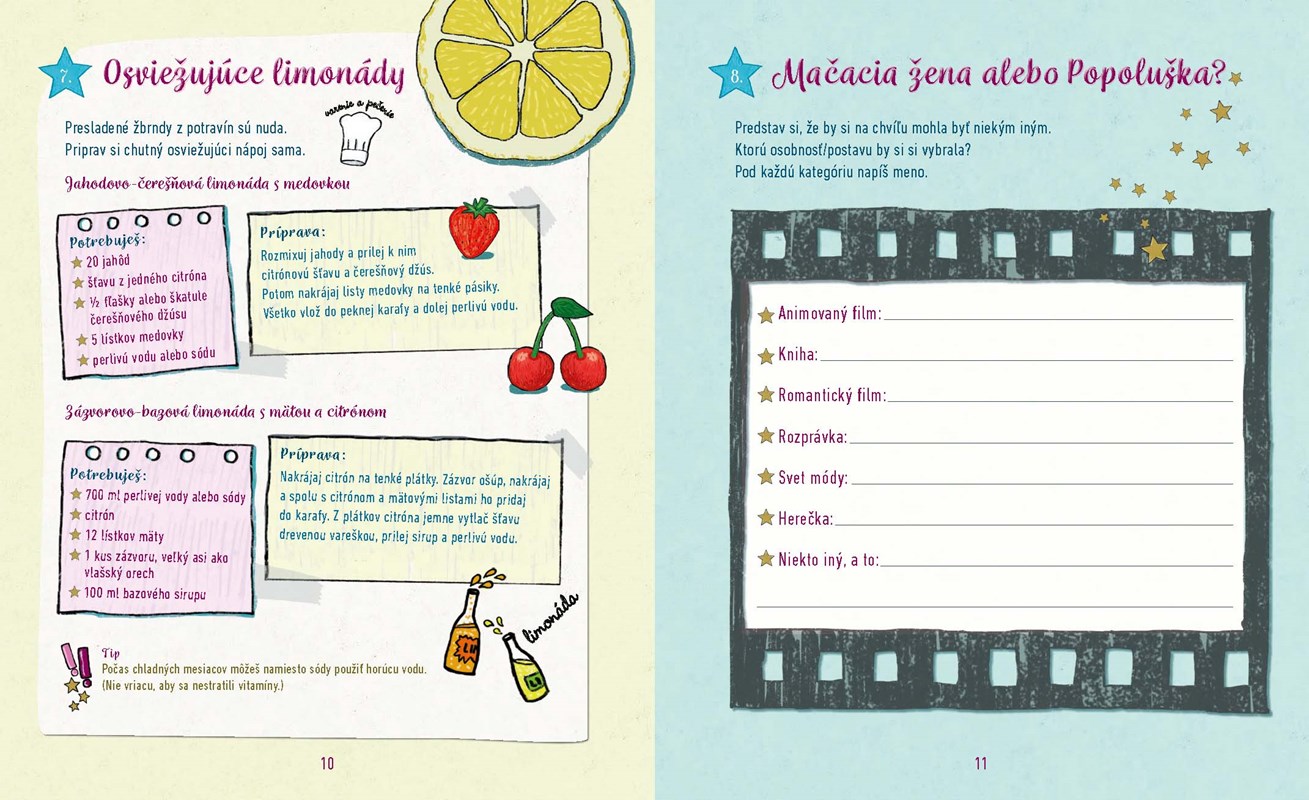 7. Osviežujúce limonády
varenie a pečenie
Presladené žbrndy z potravín sú nuda.
Priprav si chutný osviežujúci nápoj sama.
Jahodovo-čerešňová limonáda s medovkou
Potrebuješ:
20 jahôd
šťavu z jedného citróna
½ fľašky alebo škatule
čerešňového džúsu
5 lístkov medovky
perlivú vodu alebo sódu
Príprava:
Rozmixuj jahody a prilej k nim
citrónovú šťavu a čerešňový džús.
Potom nakrájaj listy medovky na tenké pásiky.
Všetko vlož do peknej karafy a dolej perlivú vodu.
Zázvorovo-bazová limonáda s mätou a citrónom
Potrebuješ:
700 ml perlivej vody alebo sódy
citrón
12 lístkov mäty
1 kus zázvoru, veľký asi ako
vlašský orech
100 ml bazového sirupu
Príprava:
Nakrájaj citrón na tenké plátky. Zázvor ošúp, nakrájaj
a spolu s citrónom a mätovými listami ho pridaj
do karafy. Z plátkov citróna jemne vytlač šťavu
drevenou vareškou, prilej sirup a perlivú vodu.
limonáda
LI
LI
Tip
Počas chladných mesiacov môžeš namiesto sódy použiť horúcu vodu.
(Nie vriacu, aby sa nestratili vitamíny.)
10
8. Mačacia žena alebo Popoluška?
Predstav si, že by si na chvíľu mohla byť niekým iným.
Ktorú osobnosť/postavu by si si vybrala?
Pod každú kategóriu napíš meno.
Animovaný film:
Kniha:
Romantický film:
Rozprávka:
Svet módy:
Herečka:
Niekto iný, a to:
11